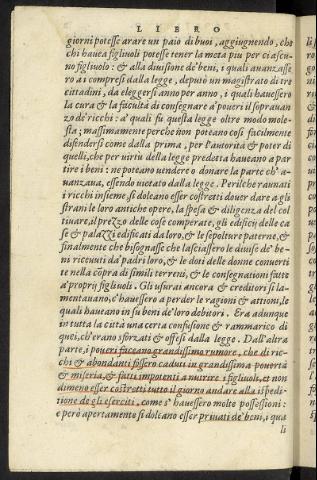 LIBRO
giorni potesse arare un paio di buoi, aggiugnendo, che
chi havea figliuoli potesse tener la metà piu per ciascu-
no figliuolo: & alla divisione de' beni, i quali avanzasse
ro a i compresi dalla legge, deputò un magistrato di tre
cittadini, da eleggersi anno per anno, i quali havessero
la cura & la facultà di consegnare a' poveri il sopravan
zo de' ricchi: a' quali fu questa legge oltre modo mole-
sta; massimamente perche non poteano cosi facilmente
difendersi come dalla prima, per l'autorità & poter di
quelli, che per virtù della legge predetta haveano a par
tire i beni: ne poteano vendere o donare la parte ch' a-
vanzaua, essendo vietato dalla legge. Perilche raunati
i ricchi insieme si doleano esser costretti dover dare a gli
strani le loro antiche opere, la spesa & diligenza del col
tiuare, il prezzo delle cose comperate, gli edificij delle ca
se & palazzi edificati da loro, & le sepolture paterne, &
finalmente che bisognasse che lasciassero le divise de' be
ni ricevuti da' padri loro, & le doti delle donne converti
te nella cõpra di simili terreni, & le consegnationi fatte
a' proprij figliuoli. Gli usurai ancora & creditori si la-
mentauano, c'havessero a perder le ragioni & attioni, le
quali haveano in su beni de' loro debitori. Era adunque
in tutta la città una certa confusione & rammarico di
quei, ch'erano sforzati & offesi dalla legge. Dall'altra
parte, i poveri faceano grandissimo rumore, che di ric-
chi & abondanti fossero caduti in grandissima povertà
& miseria, & fatti impotenti a nutrire i figliuoli, et non
dimeno esser costretti tutto il giorno andare alla ispedi-
tione de gli eserciti, come s'havessero molte possessioni:
e però apertamente si doleano esser privati de' beni, i qua
li